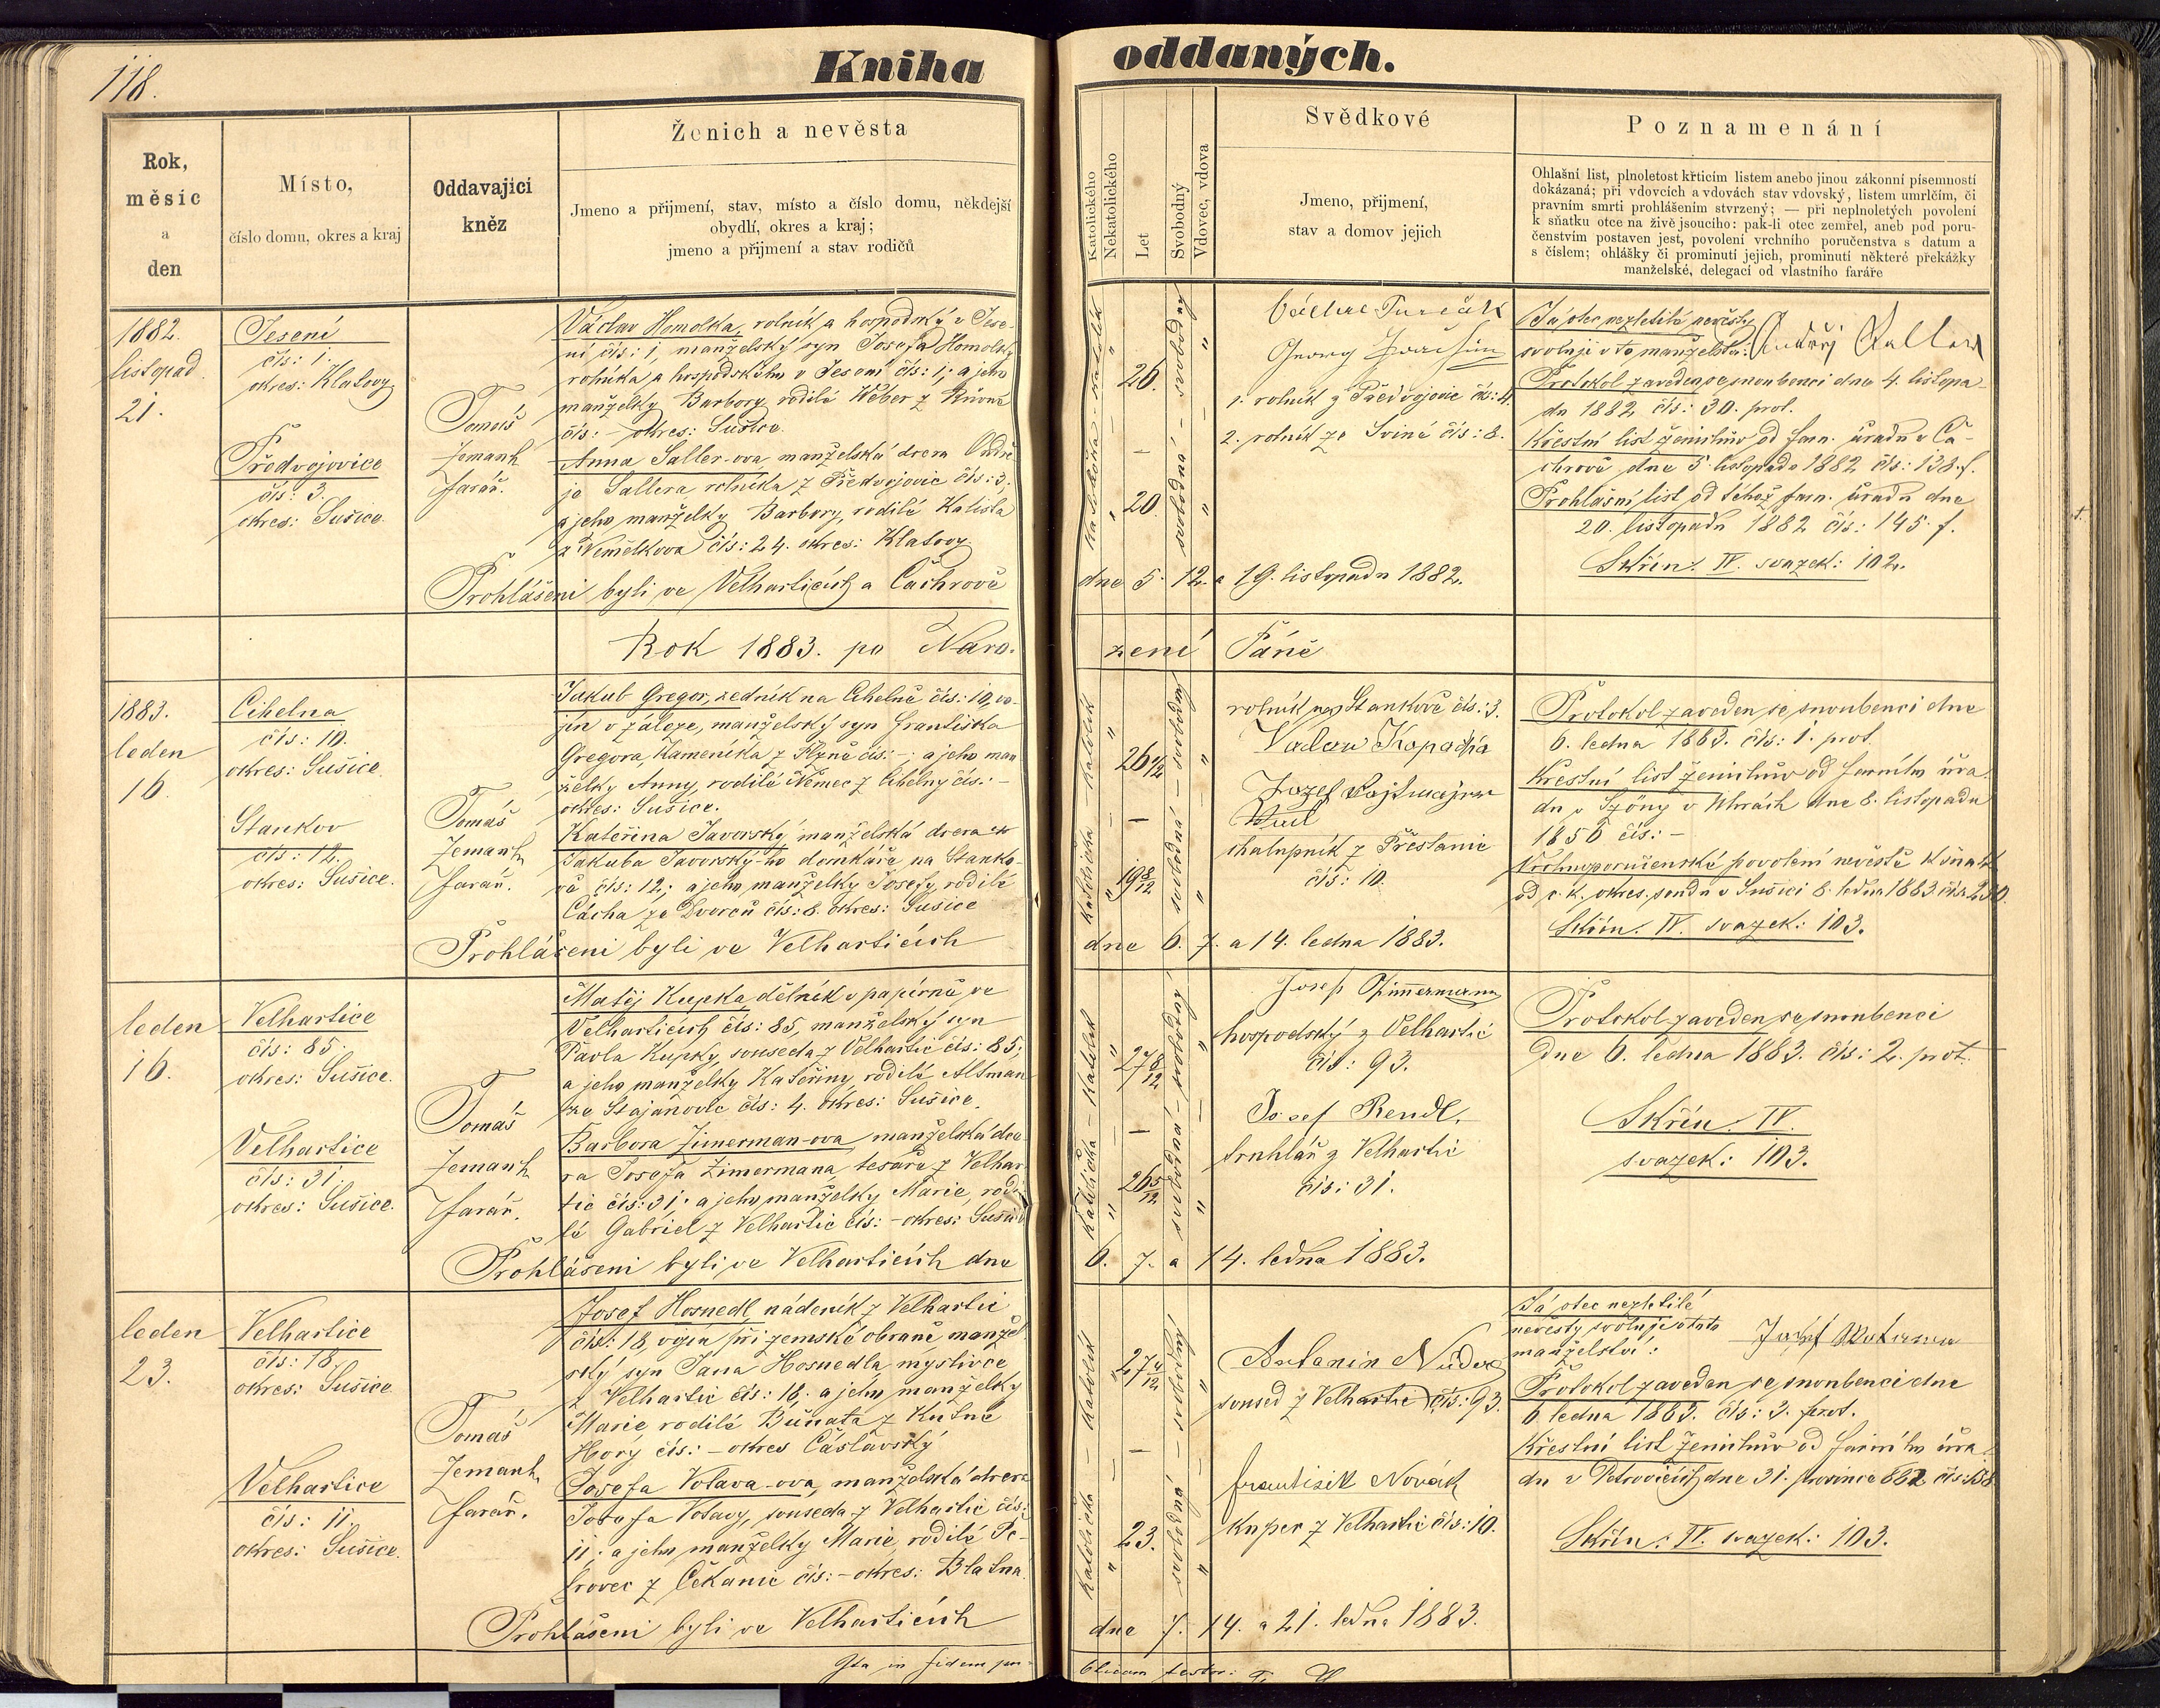 118.
Kniha oddaných.
Rok,
měsíc
a
den
Místo,
číslo domu, okres a kraj
Oddavající
kněz
Ženich a nevěsta
Jmeno a přijmení, stav, místo a číslo domu, někdejší
obydlí, okres a kraj;
jmeno a přijmení a stav rodičů
Katolického
Nekatolického
Let
Svobodný
Vdovec, vdova
Svědkové
Jmeno, přijmení,
stav a domov jejich
Poznamenání
Ohlašní list, plnoletost křticím listem anebo jinou zákonní písemností
dokázaná; při vdovcích a vdovách stav vdovský, listem umrlčím, či
pravním smrti prohlášením stvrzený; — při neplnoletých povolení
k sňatku otce na živě jsoucího: pak-li otec zemřel, aneb pod poru-
čenstvím postaven jest, povolení vrchního poručenstva s datum a
s číslem; ohlášky či prominutí jejich, prominutí některé překážky
manželské, delegací od vlastního faráře
1882.
listopad
21.
Jesení
čís: 1.
okres: Klatovy
Předvojovice
čís: 3.
okres: Sušice.
Tomáš
Zemank
farář.
Václav Homolka, rolník a hospodský v Jese-
ní čís: 1, manželský syn Josefa Homolky
rolníka a hospodského v Jesení čís: 1; a jeho
manželky Barbory, rodilé Weber z
čís: – okres: Sušice.
Anna Saller-ova manželská dcera Ondře
je Sallera, rolníka z Předvojovic čís: 3;
a jeho manželky Barbory, rodilé Kalista
z Nemělkova čís: 24. okres: Klatovy.
Prohlášeni byli ve Velharticích a Čachrově
dne 5. 12. a 19. listopadu 1882.
katolík
26.
svobodný
katolička
20.
svobodná
Georg
1. rolník z Předvojovic čís: 4.
2. rolník ze Sviné čís: 8.
Já otec nezletilé nevěsty
svoluji v to manželství: Ondřej Saller
Protokol zaveden se snoubenci dne 4. listopa-
du 1882 čís: 30. prot.
Křestní list ženichův od farn. úřadu v Ča-
chrově dne 5. listopadu 1882 čís: 138. f.
Prohlašní list od téhož farn. úřadu dne
20. listopadu 1882 čís: 145. f.
Skříň: IV. svazek: 102.
Rok 1883. po Naro-
zení Páně
1883.
leden
16.
Cihelna
čís: 10.
okres: Sušice.
Stankov
čís: 12.
okres: Sušice.
Tomáš
Zemank
farář.
Jakub Gregor, zedník na Cihelně čís: 10, vo-
jín v záloze, manželský syn Františka
Gregora, kameníka z čís: –; a jeho man
želky Anny, rodilé Němec z Cihelny čís: –
okres: Sušice.
Kateřina Javorský, manželská dcera
Jakuba Javorský-ho domkáře na Stanko-
vě čís: 12; a jeho manželky Josefy, rodilé
Cácha ze Dvorců čís: 8. okres: Sušice
Prohlášeni byli ve Velharticích
dne 6. 7. a 14. ledna 1883.
katolík
svobodný
katolička
19 8/12
svobodná
rolník na Stankově čís: 3.
Vaclav Kopačka
Jozef
chalupník z Přestanic
čís: 10.
Protokol zaveden se snoubenci dne
6. ledna 1883. čís: 1. prot.
Křestní list ženichův od farního úřa-
du v Szöny v Uhrách dne 8. listopadu
1856 čís: –
Vrchnoporučenské povolení nevěstě k sňatku
od c. k. okres. soudu v Sušici 8. ledna 1883 čís: 230.
Skříň: IV. svazek: 103.
leden
16.
Velhartice
čís: 85.
okres: Sušice.
Velhartice
čís: 31.
okres: Sušice.
Tomáš
Zemank
farář.
Matěj Kupka, dělník v papírně ve
Velharticích čís: 85, manželský syn
Pavla Kupky, souseda z Velhartic čís: 85;
a jeho manželky Kateřiny, rodilé Altman
ze Stajanovic čís: 4. okres: Sušice.
Barbora Zimerman-ova, manželská dce-
ra Josefa Zimermana, tesaře z Velhar-
tic čís: 31; a jeho manželky Marie, rodi-
lé Gabriel z Velhartic čís: – okres: Sušice
Prohlášeni byli ve Velharticích dne
6. 7. a 14. ledna 1883.
katolík
27 8/12
svobodný
katolička
26 5/12
svobodná
Josef Zimmermann
hospodský z Velhartic
čís: 93.
Josef Rendl,
truhlář z Velhartic
čís: 31.
Protokol zaveden se snoubenci
dne 6. ledna 1883. čís: 2. prot.
Skříň: IV.
svazek: 103.
leden
23.
Velhartice
čís: 18.
okres: Sušice.
Velhartice
čís: 11.
okres: Sušice.
Tomáš
Zemank
farář.
Josef Hosnedl, nádeník z Velhartic
čís: 18, vojín při zemské obraně, manžel-
ský syn Jana Hosnedla, myslivce
z Velhartic čís: 18; a jeho manželky
Marie, rodilé Buňata z Kutné
Hory čís: – okres Čáslavský
Josefa Votava-ova, manželská dcera
Josefa Votavy, souseda z Velhartic čís:
11; a jeho manželky Marie, rodilé Pe-
trovec z Čekanic čís: – okres: Blatna.
Prohlášeni byli ve Velharticích
dne 7. 14. a 21. ledna 1883.
katolík
svobodný
katolička
23.
svobodná
Antonin
soused z Velhartic čís: 93.
František Novák
kupec z Velhartic čís: 10.
Já otec nezletilé
nevěsty svoluji v toto
manželství: Josef Wotawa
Protokol zaveden se snoubenci dne
6. ledna 1883. čís: 3. prot.
Křestní list ženichův od farního úřa-
du v Petrovicích dne 31. prosince 882 čís: 158
Skříň: IV. svazek: 103.
Ita in fidem pu-
blicam testor: